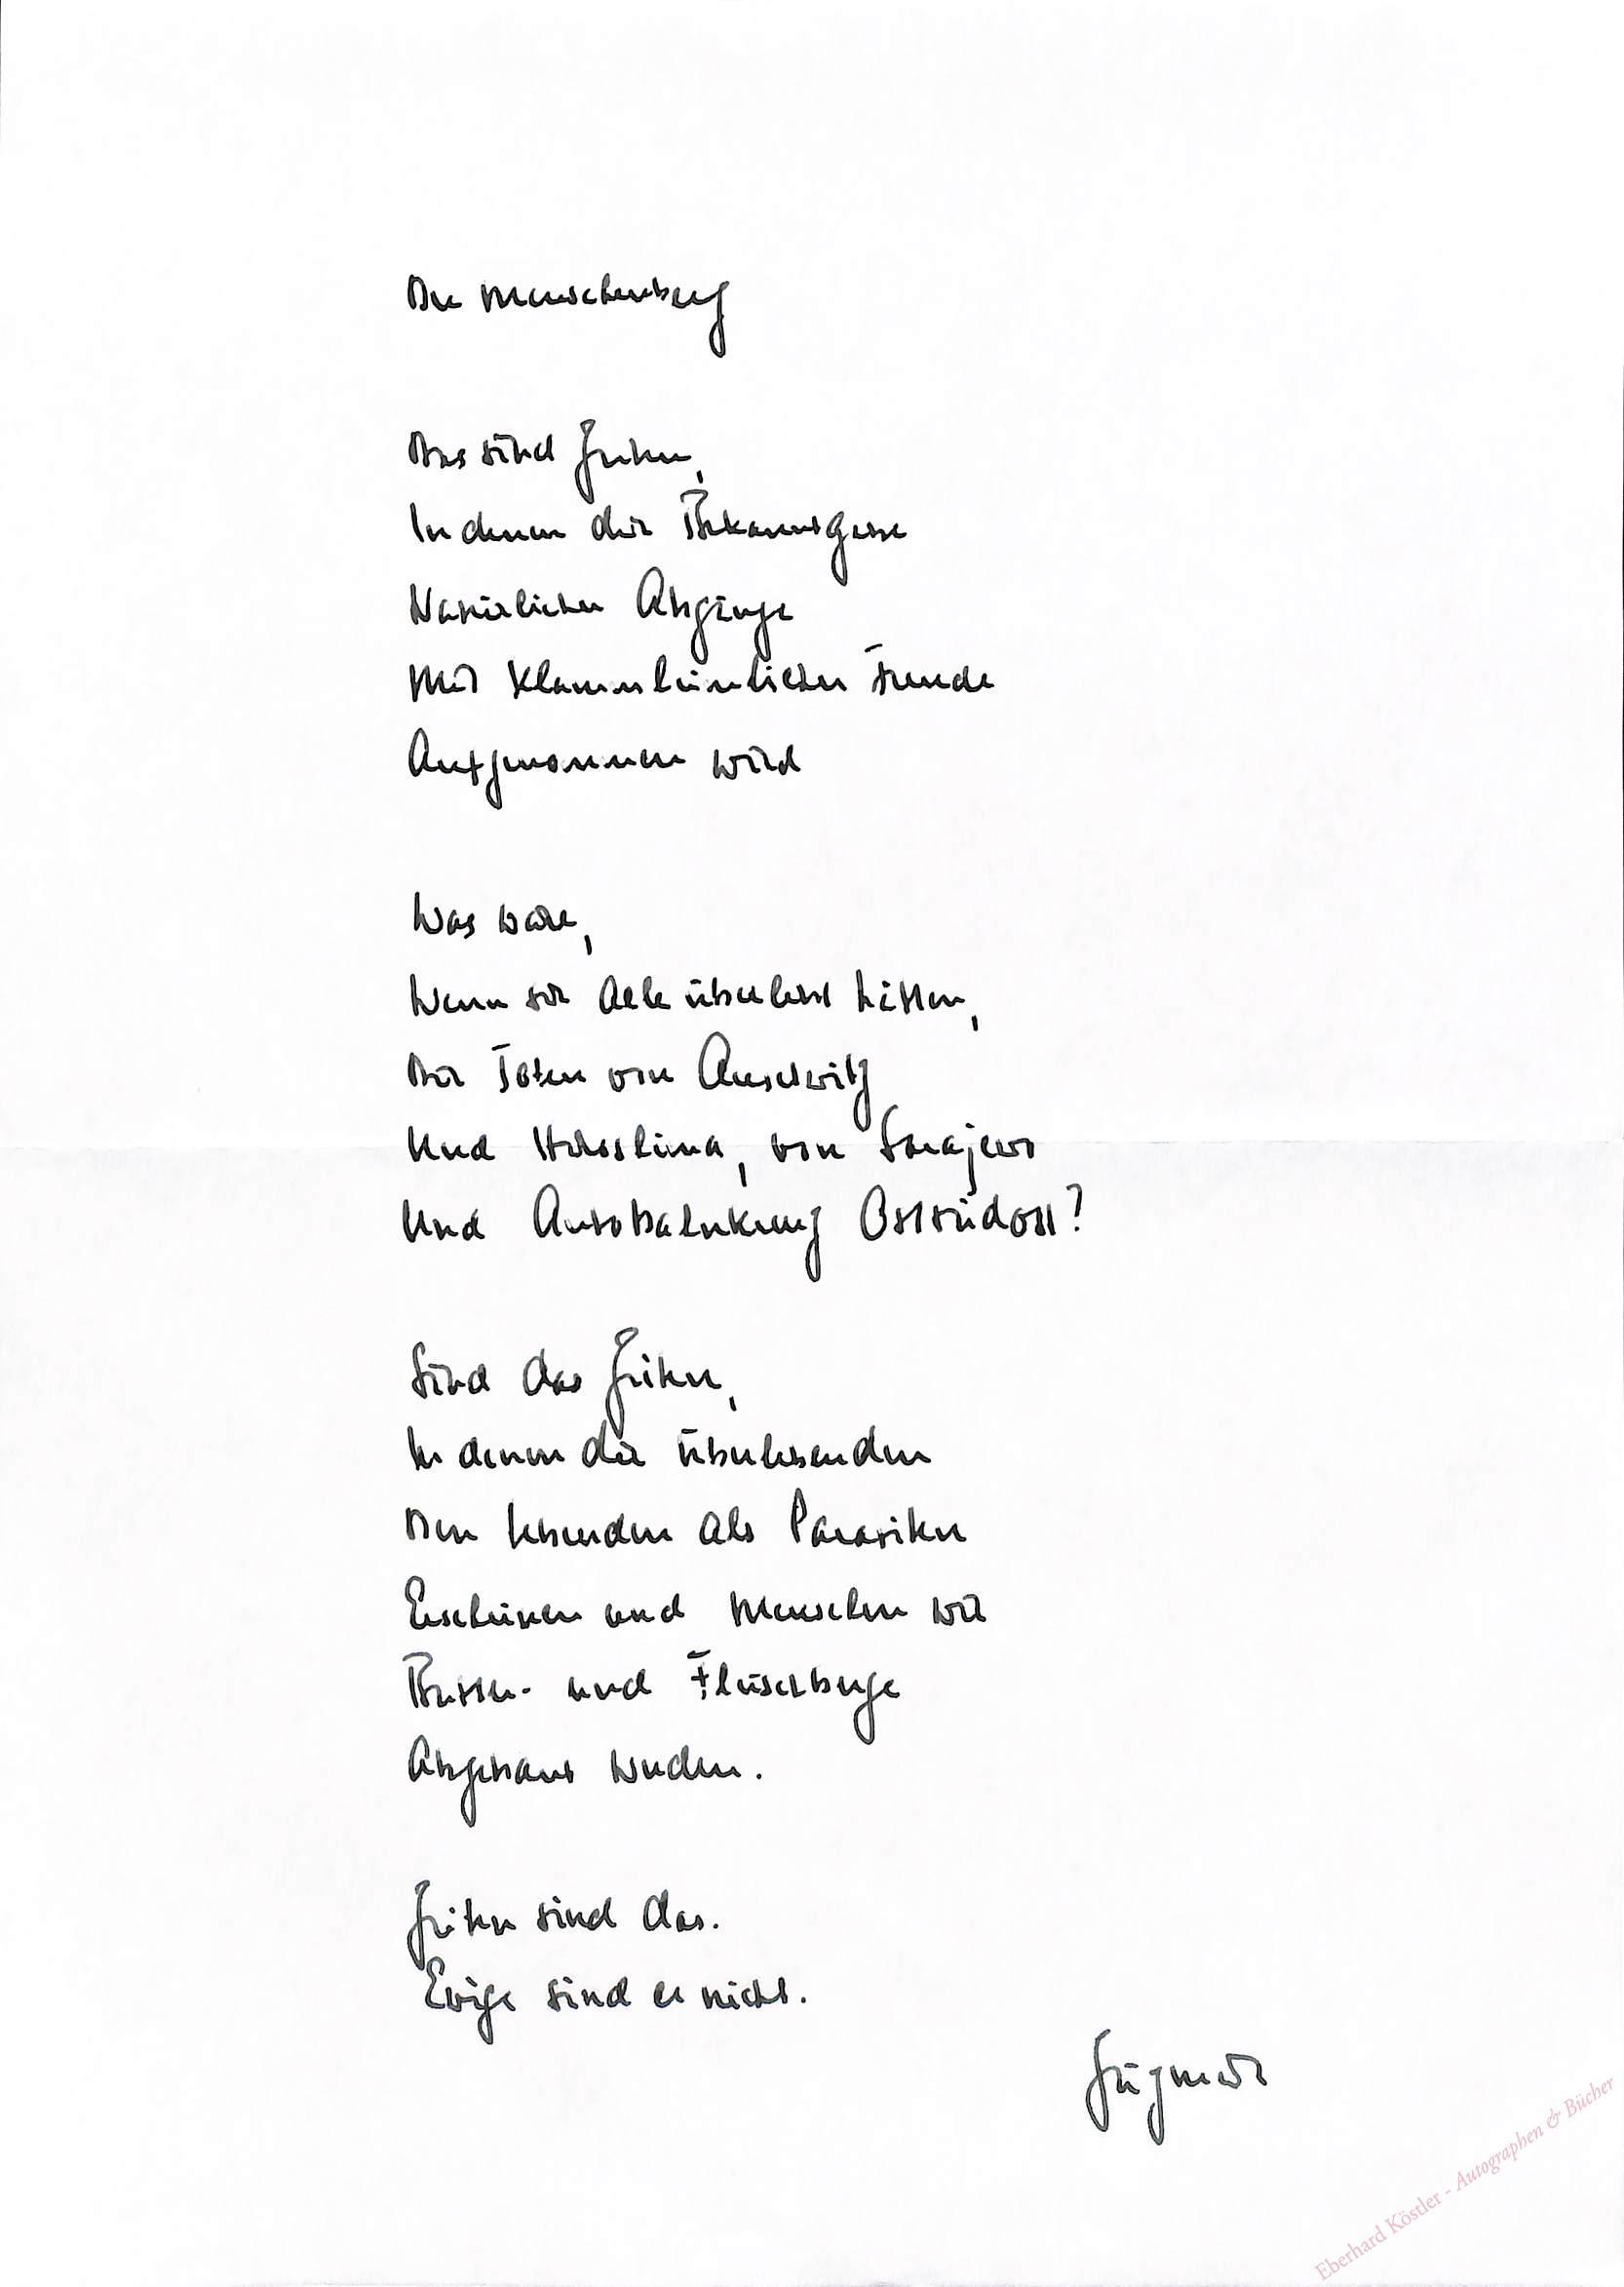 Der Menschenberg
Das sind Zeiten,
In denen die Bekanntgabe
Natürlicher Abgänge
Mit klammheimlicher Freude
Aufgenommen wird
Was wäre,
Wenn sie alle überlebt hätten,
Die Toten von Auschwitz
Und Hiroshima, von Sarajewo
Und Autobahnkreuz Ostsüdost?
Sind das Zeiten,
In denen die Überlebenden
Den Lebenden als Parasiten
Erscheinen und Menschen wie
Butter- und Fleischberge
Abgebaut werden.
Zeiten sind das.
Ewige sind es nicht.
Eberhard Köstler - Autographen & Bücher